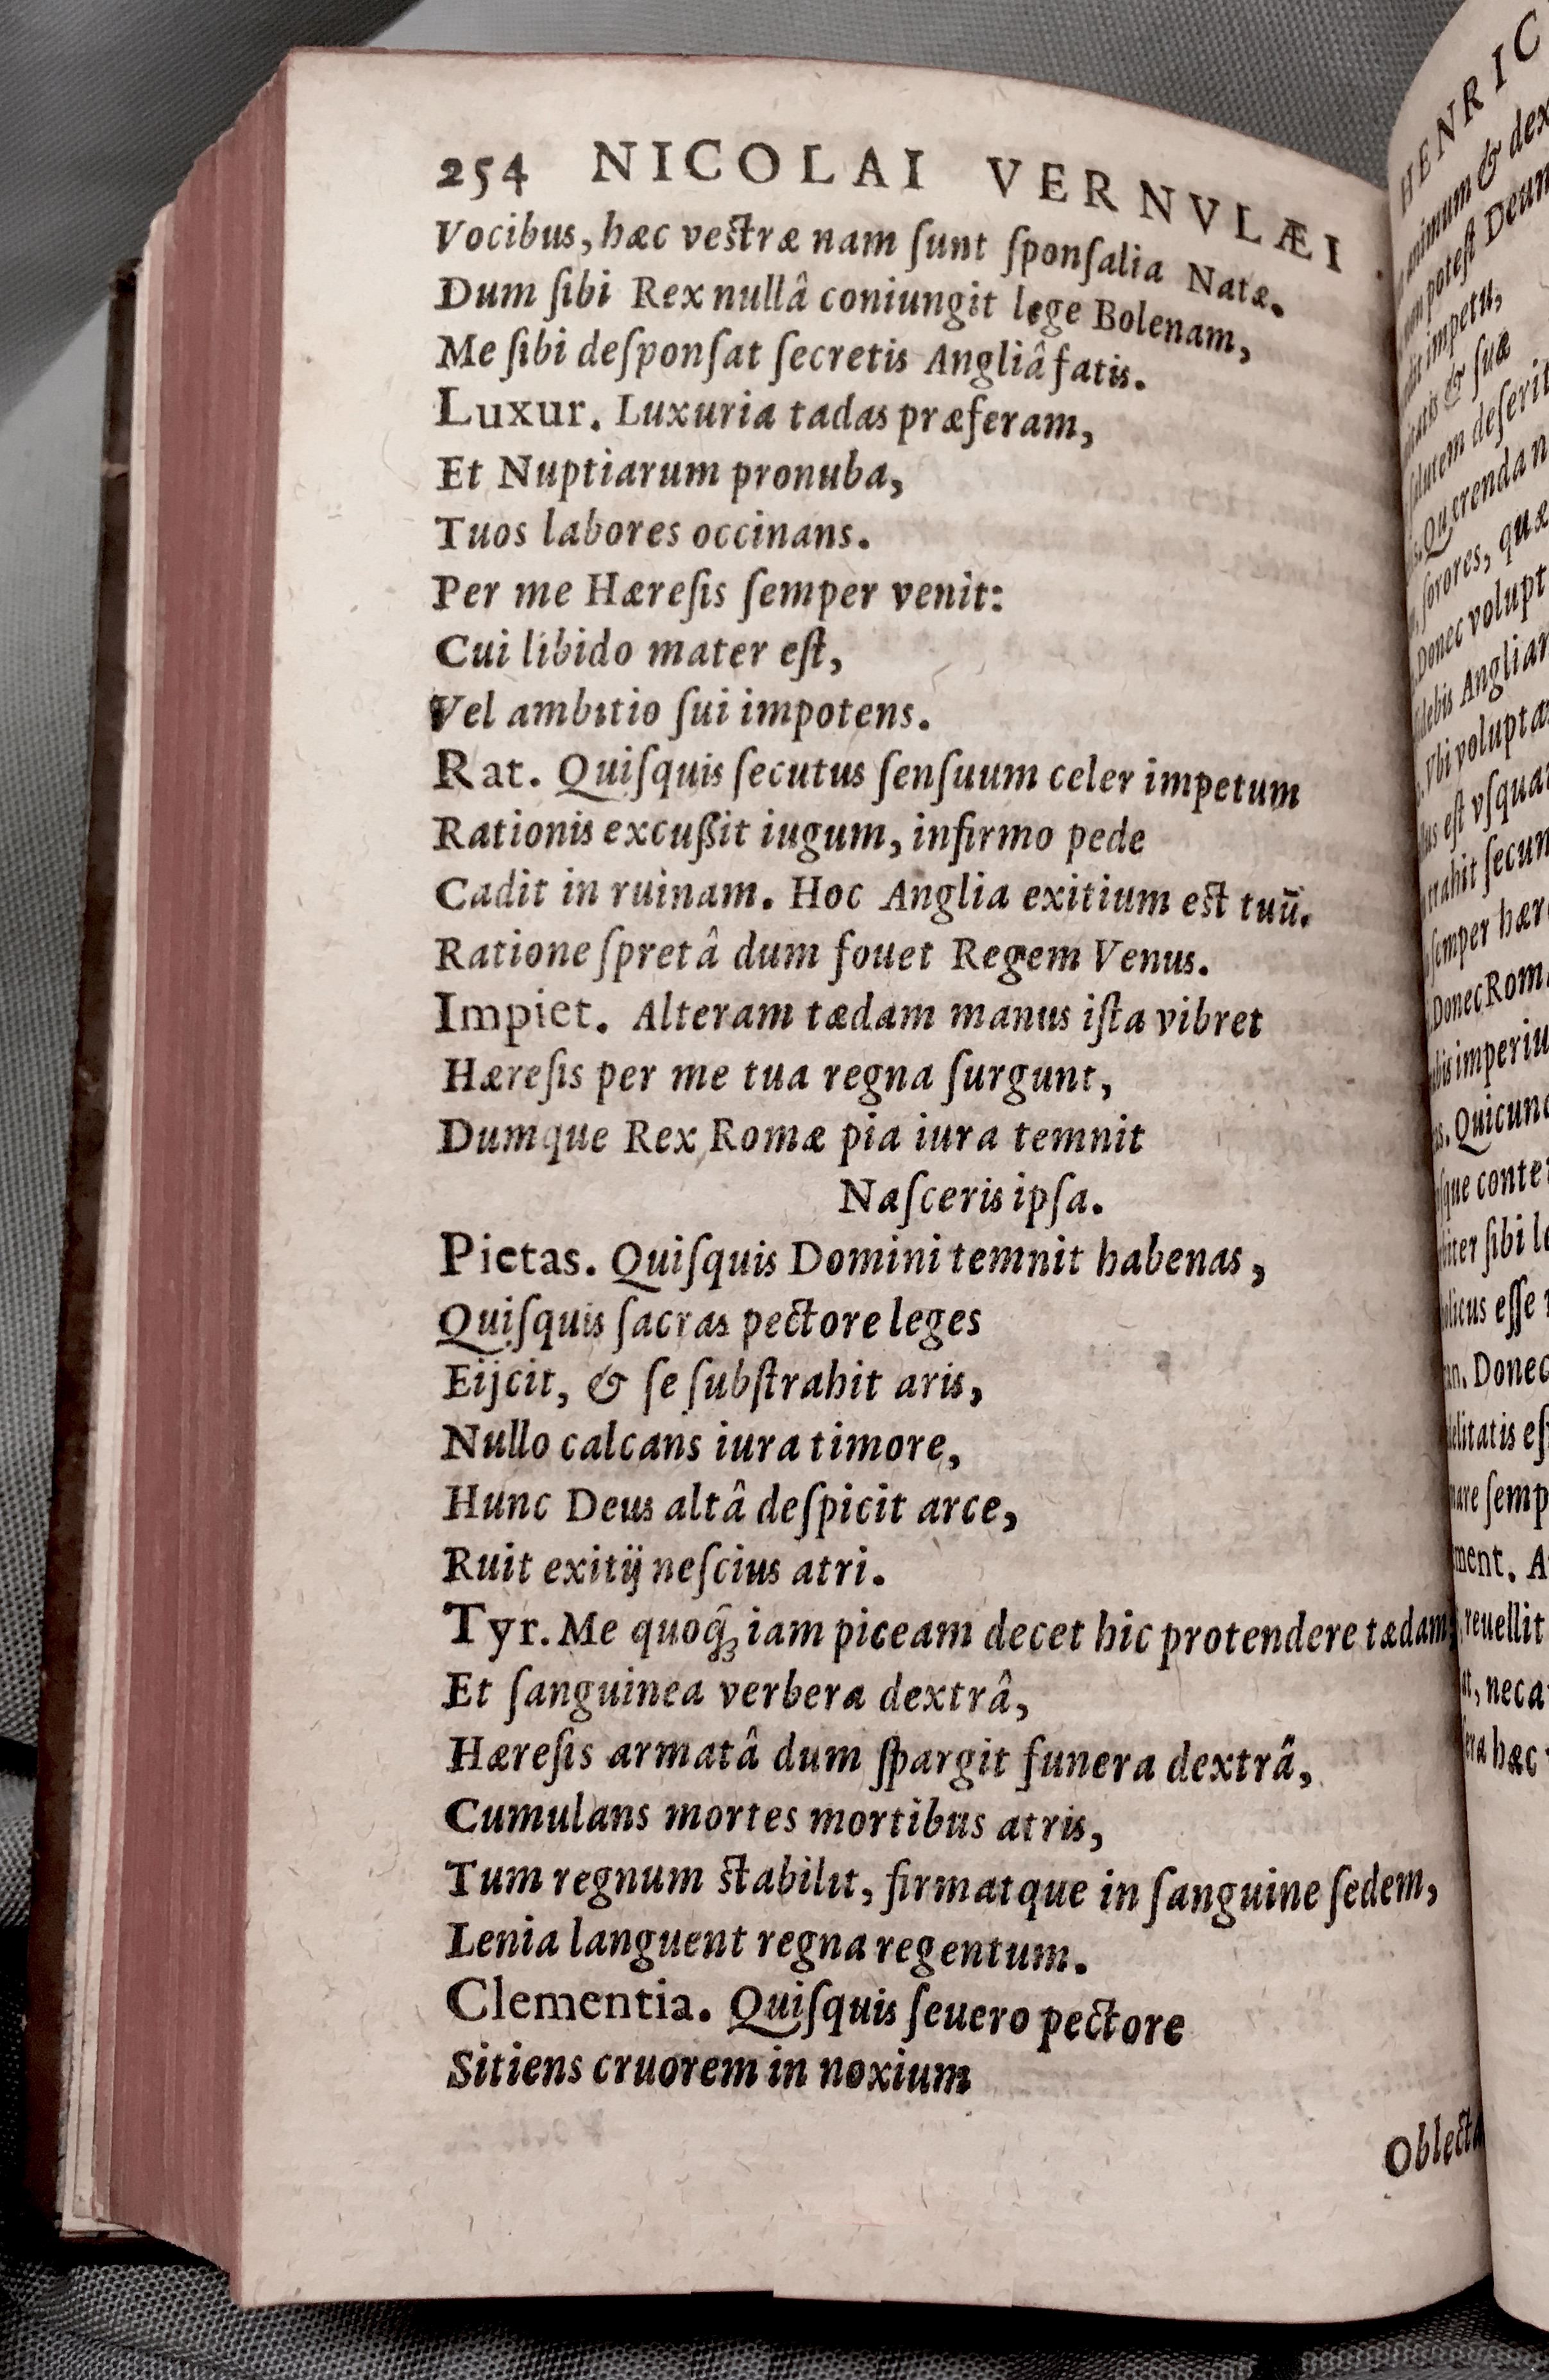 254 NICOLAI VERNVLÆI
Vocibus, hæc vestræ nam ſunt ſponſalia Natæ.
Dum ſibi Rex nullâ coniungit lege Bolenam,
Me ſibi deſponſat ſecretis Angliâ fatis.
Luxur. Luxuria tadas præferam,
Et Nuptiarum pronuba,
Tuos labores occinans.
Per me Hæreſis ſemper venit:
Cui libido mater eſt,
Vel ambitio ſui impotens.
Rat. Quiſquis ſecutus ſenſuum celer impetum
Rationis excußit iugum, infirmo pede
Cadit in ruinam. Hoc Anglia exitium est tuū.
Ratione ſpretâ dum fouet Regem Venus.
Impiet. Alteram tædam manus iſta vibret
Hæreſis per me tua regna ſurgunt,
Dumque Rex Romæ pia iura temnit
Naſceris ipſa.
Pietas. Quiſquis Domini temnit habenas,
Quiſquis ſacras pectore leges
Eijcit, & ſe ſubſtrahit aris,
Nullo calcans iura timore,
Hunc Deus altâ deſpicit arce,
Ruit exitij neſcius atri.
Tyr. Me quoq́ꝫ iam piceam decet hic protendere tædam
Et ſanguinea verbera dextrâ,
Hæreſis armatâ dum ſpargit funera dextrâ,
Cumulans mortes mortibus atris,
Tum regnum stabilit, firmatque in ſanguine ſedem,
Lenia languent regna regentum.
Clementia. Quiſquis ſeuero pectore
Sitiens cruorem in noxium
HENRIC
animum & dex
poteſt Deum
impetu,
& ſuæ
deſerit
Quærenda n
ſorores, quæ
Donec volupt
Anglia
Vbi volupta
eſt vſqua
ſecun
ſemper hær
Donec Rom
imperiu
Quicunq
conte
ſibi l
eſſe
Donec
ſemp
A
reuellit
neca
hæc